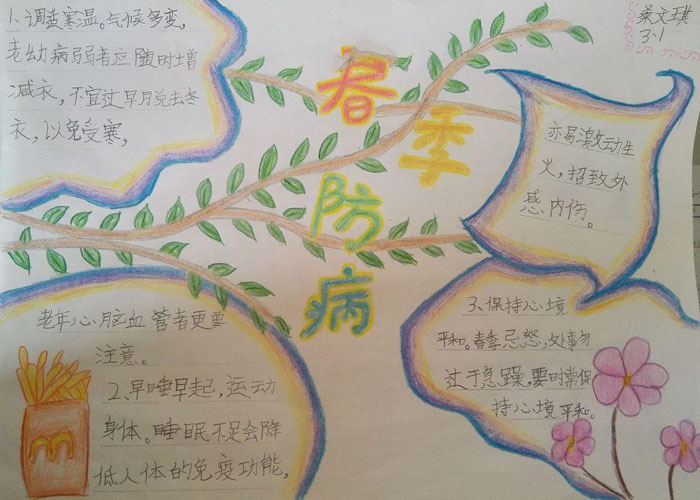 1、调适寒温。气候多变,
老幼病弱者应随时增
减衣,不宜过早脱去冬
衣,以免受寒,
桑文琪
3.1
春季防病
亦易激动生
火,招致外
感内伤。
老年心脑血管者更要
注意。
2、早睡早起,运动
身体。睡眠不足会降
低人体的免疫功能,
3、保持心境
平和。春季忌怒,处事勿
过于急躁,要时常保
持心境平和。